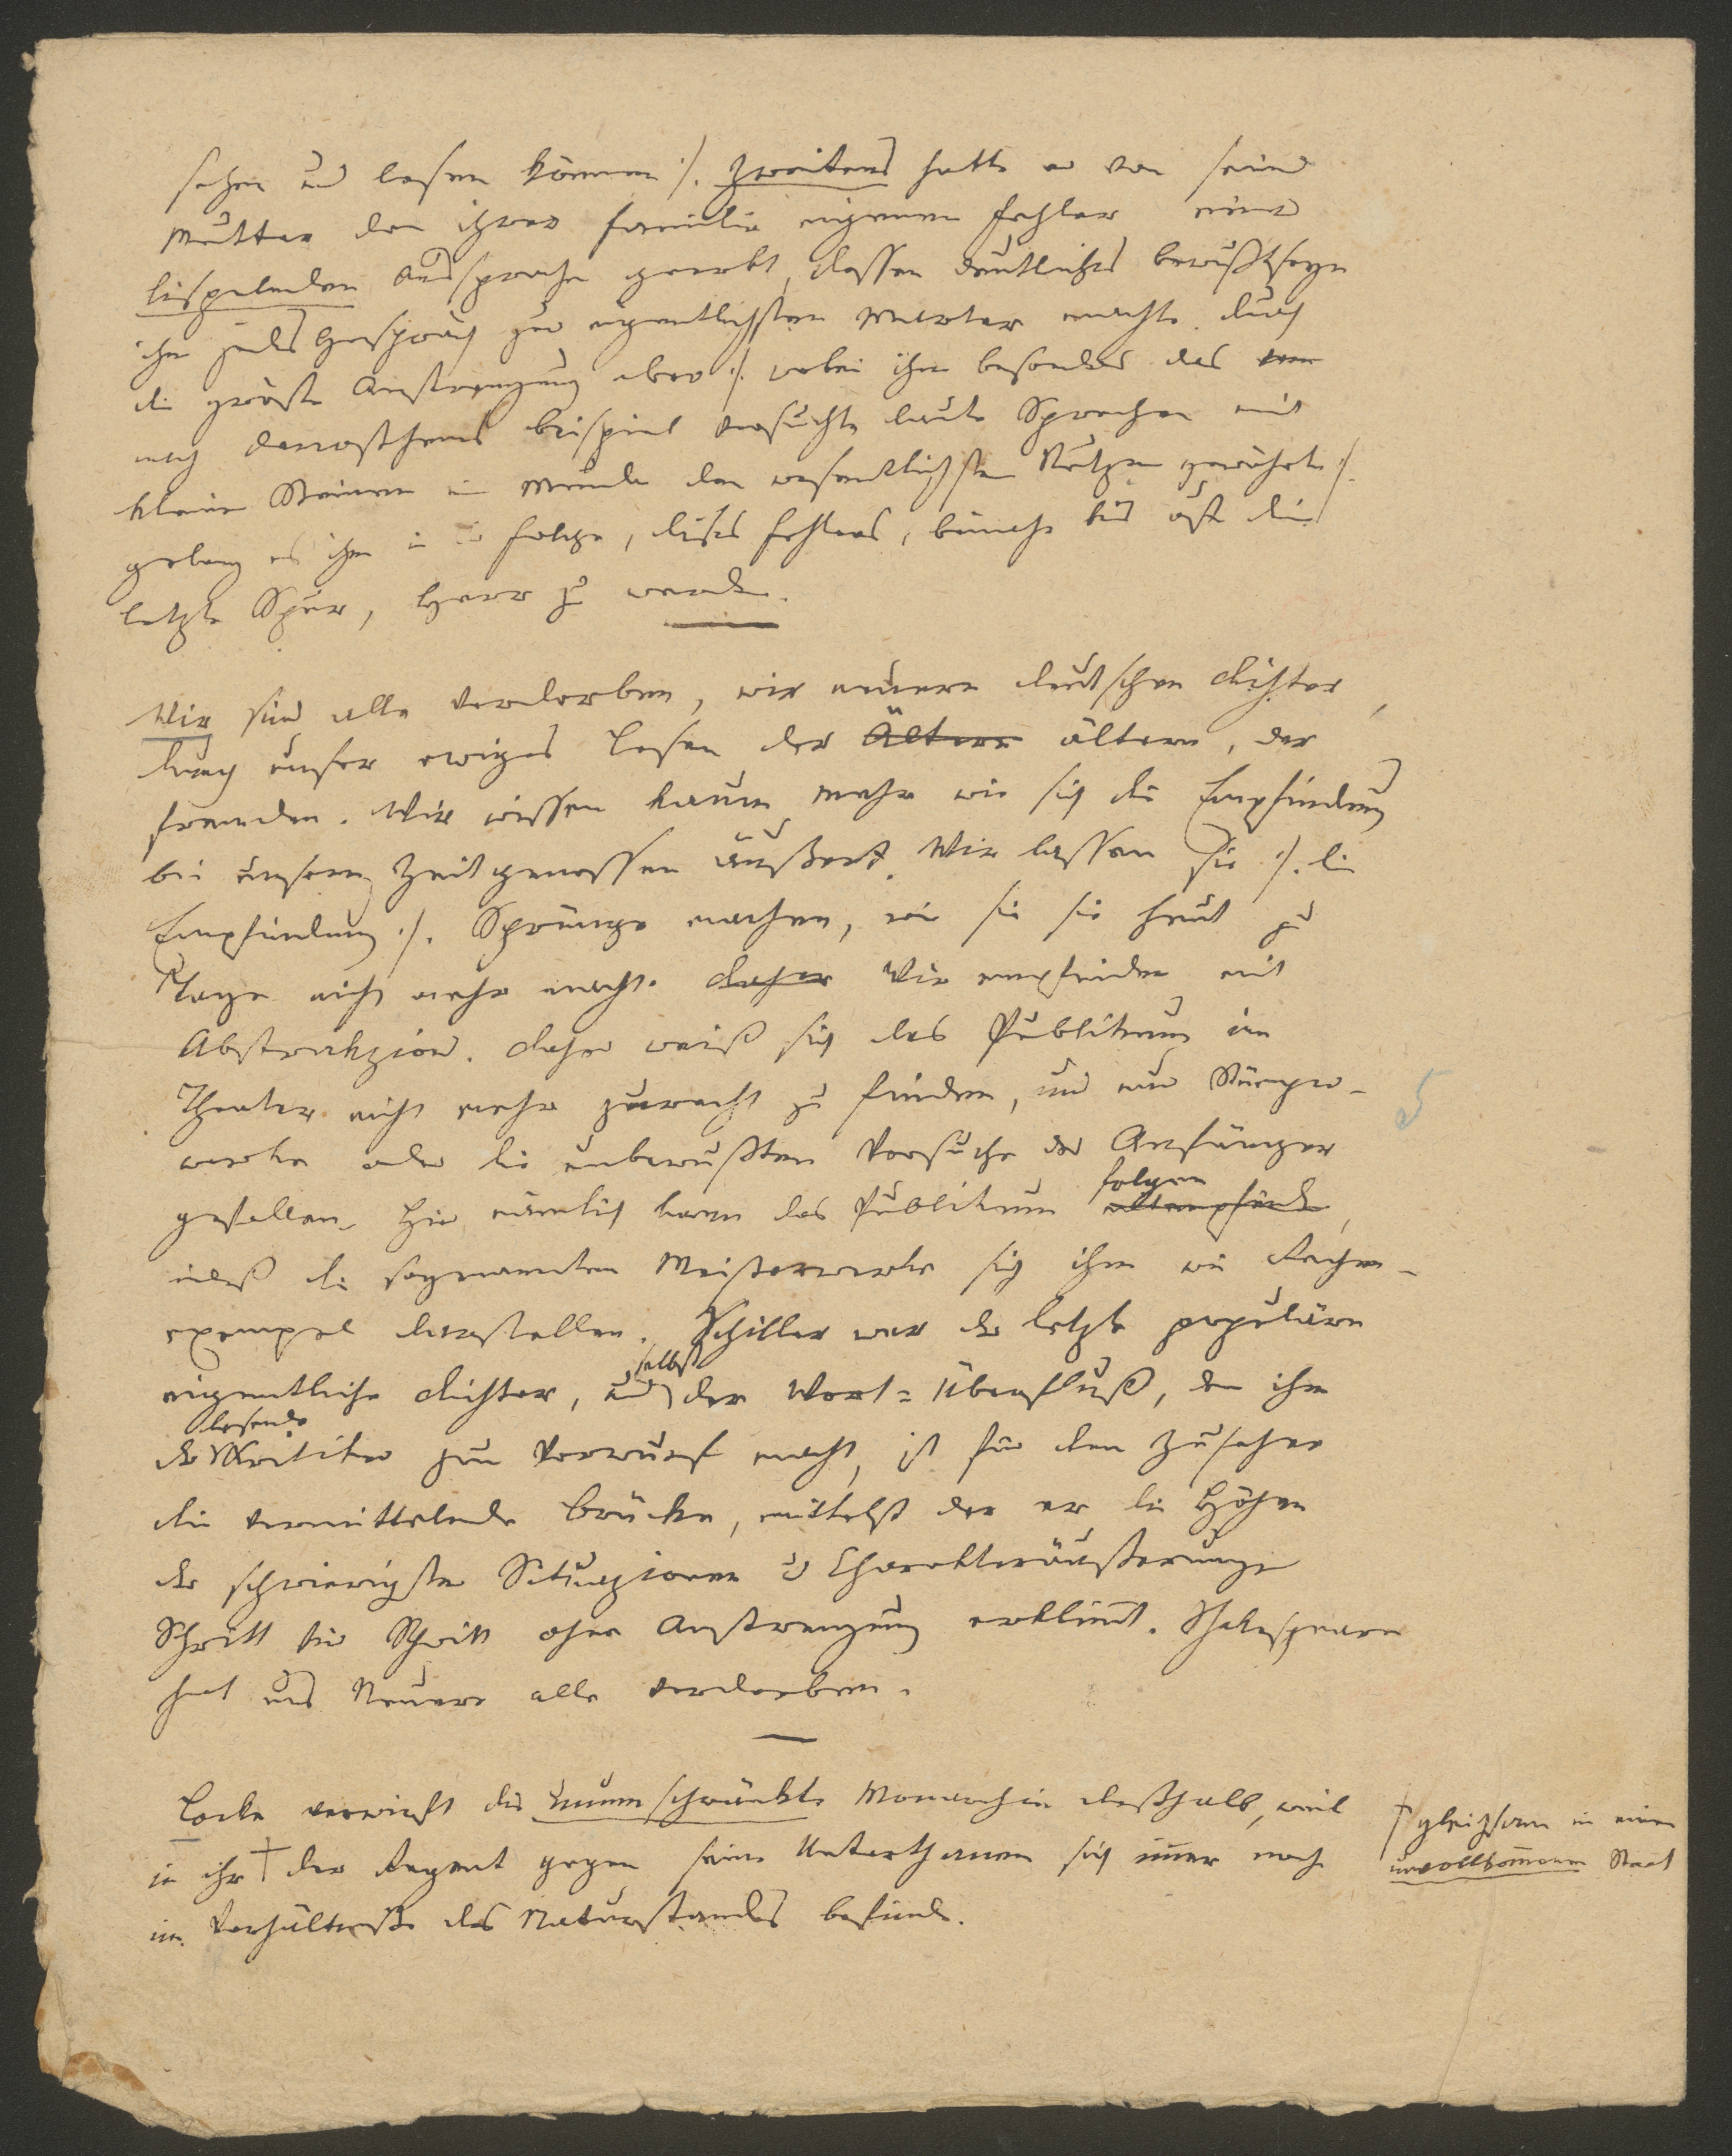 sehen und lesen können :/. Zweitens hatte er von seiner
Mutter den ihrer Familie eigenen Fehler einer
lispelnden Aussprache geerbt, dessen deutliches Bewußtseyn
ihm jedes Gespräch zur eigentlichsten Marter machte. Durch
die größte Anstrengung aber :/. wobei ihm besonders das
nach Demosthens Beispiel versuchte laute Sprechen mit
kleinen Steinen im Munde den wesentlichsten Nutzen gewährte :/.
gelang es ihm in der Folge, dieses Fehlers, beinahe bis auf die
letzte Spur, Herr zu werden.
Wir sind alle verdorben, wir neuern deutschen Dichter,
durch unser ewiges Lesen der Ältern ältern, der
fremden. Wir wissen kaum mehr wie sich die Empfindung
bei unsern Zeitgenossen äußert. Wir lassen sie :/. die
Empfindung :/. Sprünge machen, wie sie sie heut zu
Tage nicht mehr macht. Daher Wir empfinden mit
Abstrakzion. Daher weiß sich das Publikum im
Theater nicht mehr zurecht zu finden, und nur Stümper-
werke oder die unbewußten Versuche der Anfänger
gefallen. Hier nämlich kann das Publikum folgen
indeß die sogenannten Meisterwerke sich ihm wie Rechen-
exempel darstellen. Schiller war der letzte populäre
eigentliche Dichter, und selbst der Wort-Überfluß, den ihm
der lesende Kritiker zum Vorwurf macht, ist für den Zuseher
die vermittelnde Brücke, mittelst der er die Höhen
der schwierigsten Situazionen u Charakteräußerungen
Schritt für Schritt ohne Anstrengung erklimt. Shakespeare
hat uns Neuere alle verdorben.
Locke verwirft die unumschränkte Monarchie deßhalb, weil
in ihr † der Regent gegen seine Unterthanen sich imer noch
im Verhältniße des Naturstandes befinde.
† gleichsam in einem
unvollkomenen Staat
5